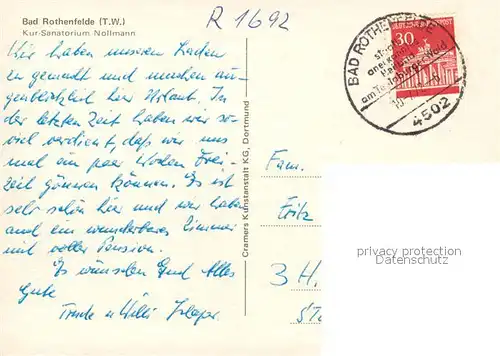 Bad Rothenfelde (T.W.)
Kur-Sanatorium Nollmann
R 1692
Wir haben unseren Laden
zu gemacht und machen au-
genblicklich hier Urlaub. In
der letzten Zeit haben wir so
viel verdient, daß wir uns
mal ein paar Wochen Frei-
zeit gönnen können. Es ist
sehr schön hier und wir haben
auch ein wunderbares Zimmer
mit voller Pension.
Es wünschen Euch Alles
Gute
Trude u Willi
Cramers Kunstanstalt KG, Dortmund
30
BAD ROTHENFELDE
am Teutoburger Wald
4502
Fam.
Fritz
3 H
privacy protection
watermark